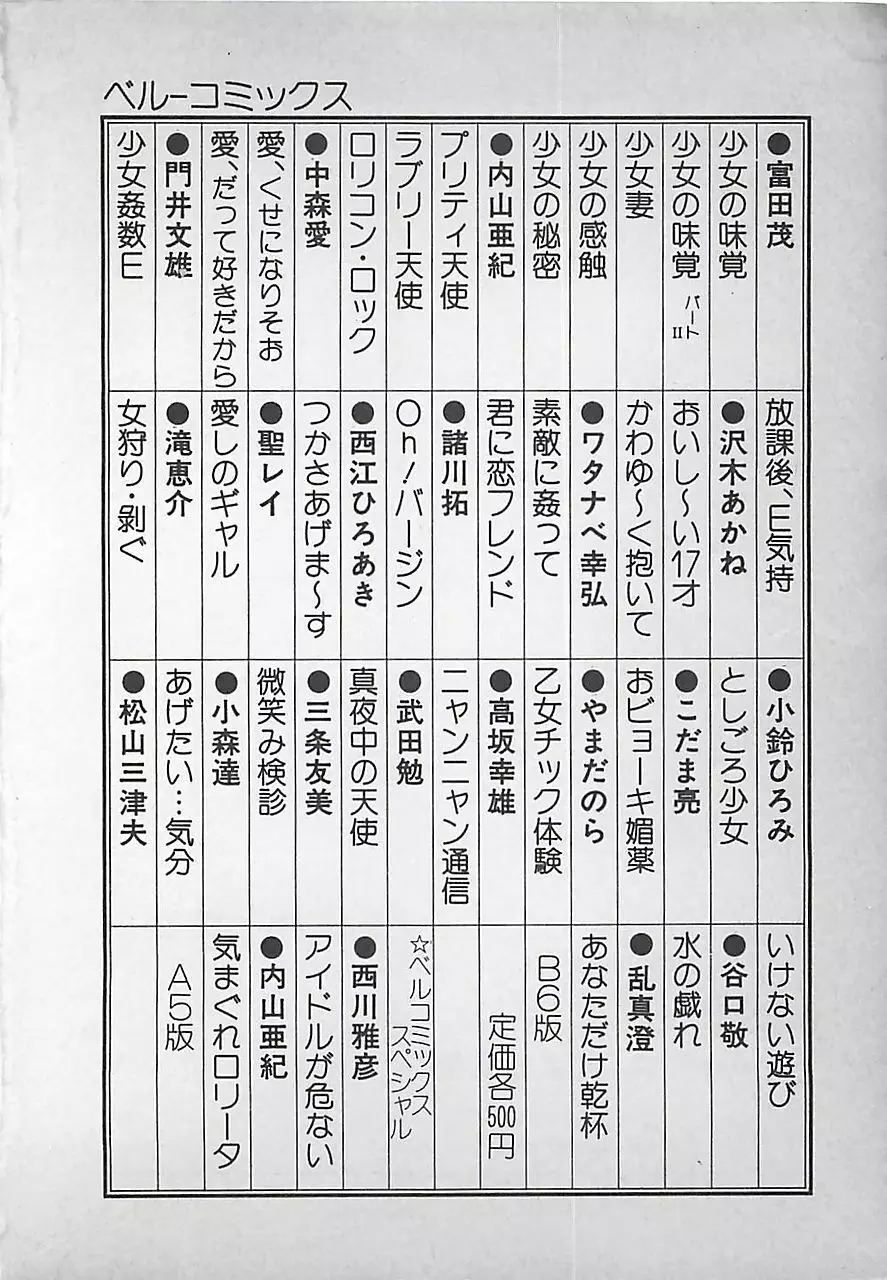 ベルーコミックス
●富田茂
少女の味覚
少女の味覚 パートII
少女妻
少女の感触
少女の秘密
●内山亜紀
プリティ天使
ラブリー天使
ロリコン・ロック
●中森愛
愛、くせになりそお
愛、だって好きだから
●門井文雄
少女姦数E
放課後、E気持
●沢木あかね
おいし〜い17才
かわゆ〜く抱いて
●ワタナベ幸弘
素敵に姦って
君に恋フレンド
●諸川拓
Oh!バージン
●西江ひろあき
つかさあげま〜す
●聖レイ
愛しのギャル
●滝恵介
女狩り・剝ぐ
●小鈴ひろみ
としごろ少女
●こだま亮
おビョーキ媚薬
●やまだのら
乙女チック体験
●高坂幸雄
ニャンニャン通信
●武田勉
真夜中の天使
●三条友美
微笑み検診
●小森達
あげたい…気分
●松山三津夫
いけない遊び
●谷口敬
水の戯れ
●乱真澄
あなただけ乾杯
B6版
定価各500円
☆ベルコミックス
スペシャル
●西川雅彦
アイドルが危ない
●内山亜紀
気まぐれロリータ
A5版